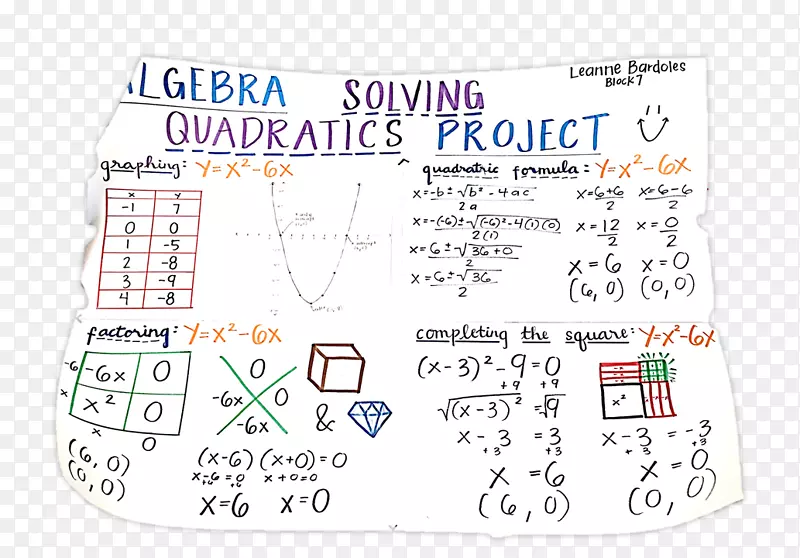 LGEBRA SOLVING
QUADRATICS PROJECT
Leanne Bardoles
Block 7
graphing: Y=x²-6x
x y
-1 7
0 0
1 -5
2 -8
3 -9
4 -8
quadratric formula: Y=x²-6x
x=-b±√b²-4ac/2a
x=-(-6)±√(-6)²-4(1)(0)/2(1)
x=6±√36+0/2
x=6±√36/2
x=6+6/2 x=6-6/2
x=12/2 x=0/2
x=6 x=0
(6,0) (0,0)
factoring: Y=x²-6x
-6 -6x 0
x x² 0
x 0
(6,0)
(0,0)
0
-6x 0
-6x
&
(x-6)(x+0)=0
x-6=0 x+0=0
+6 +6
x=6 x=0
completing the square: Y=x²-6x
(x-3)²-9=0
+9 +9
√(x-3)²=√9
x-3=3
+3 +3
x=6
(6,0)
x²
x-3=-3
+3 +3
x=0
(0,0)